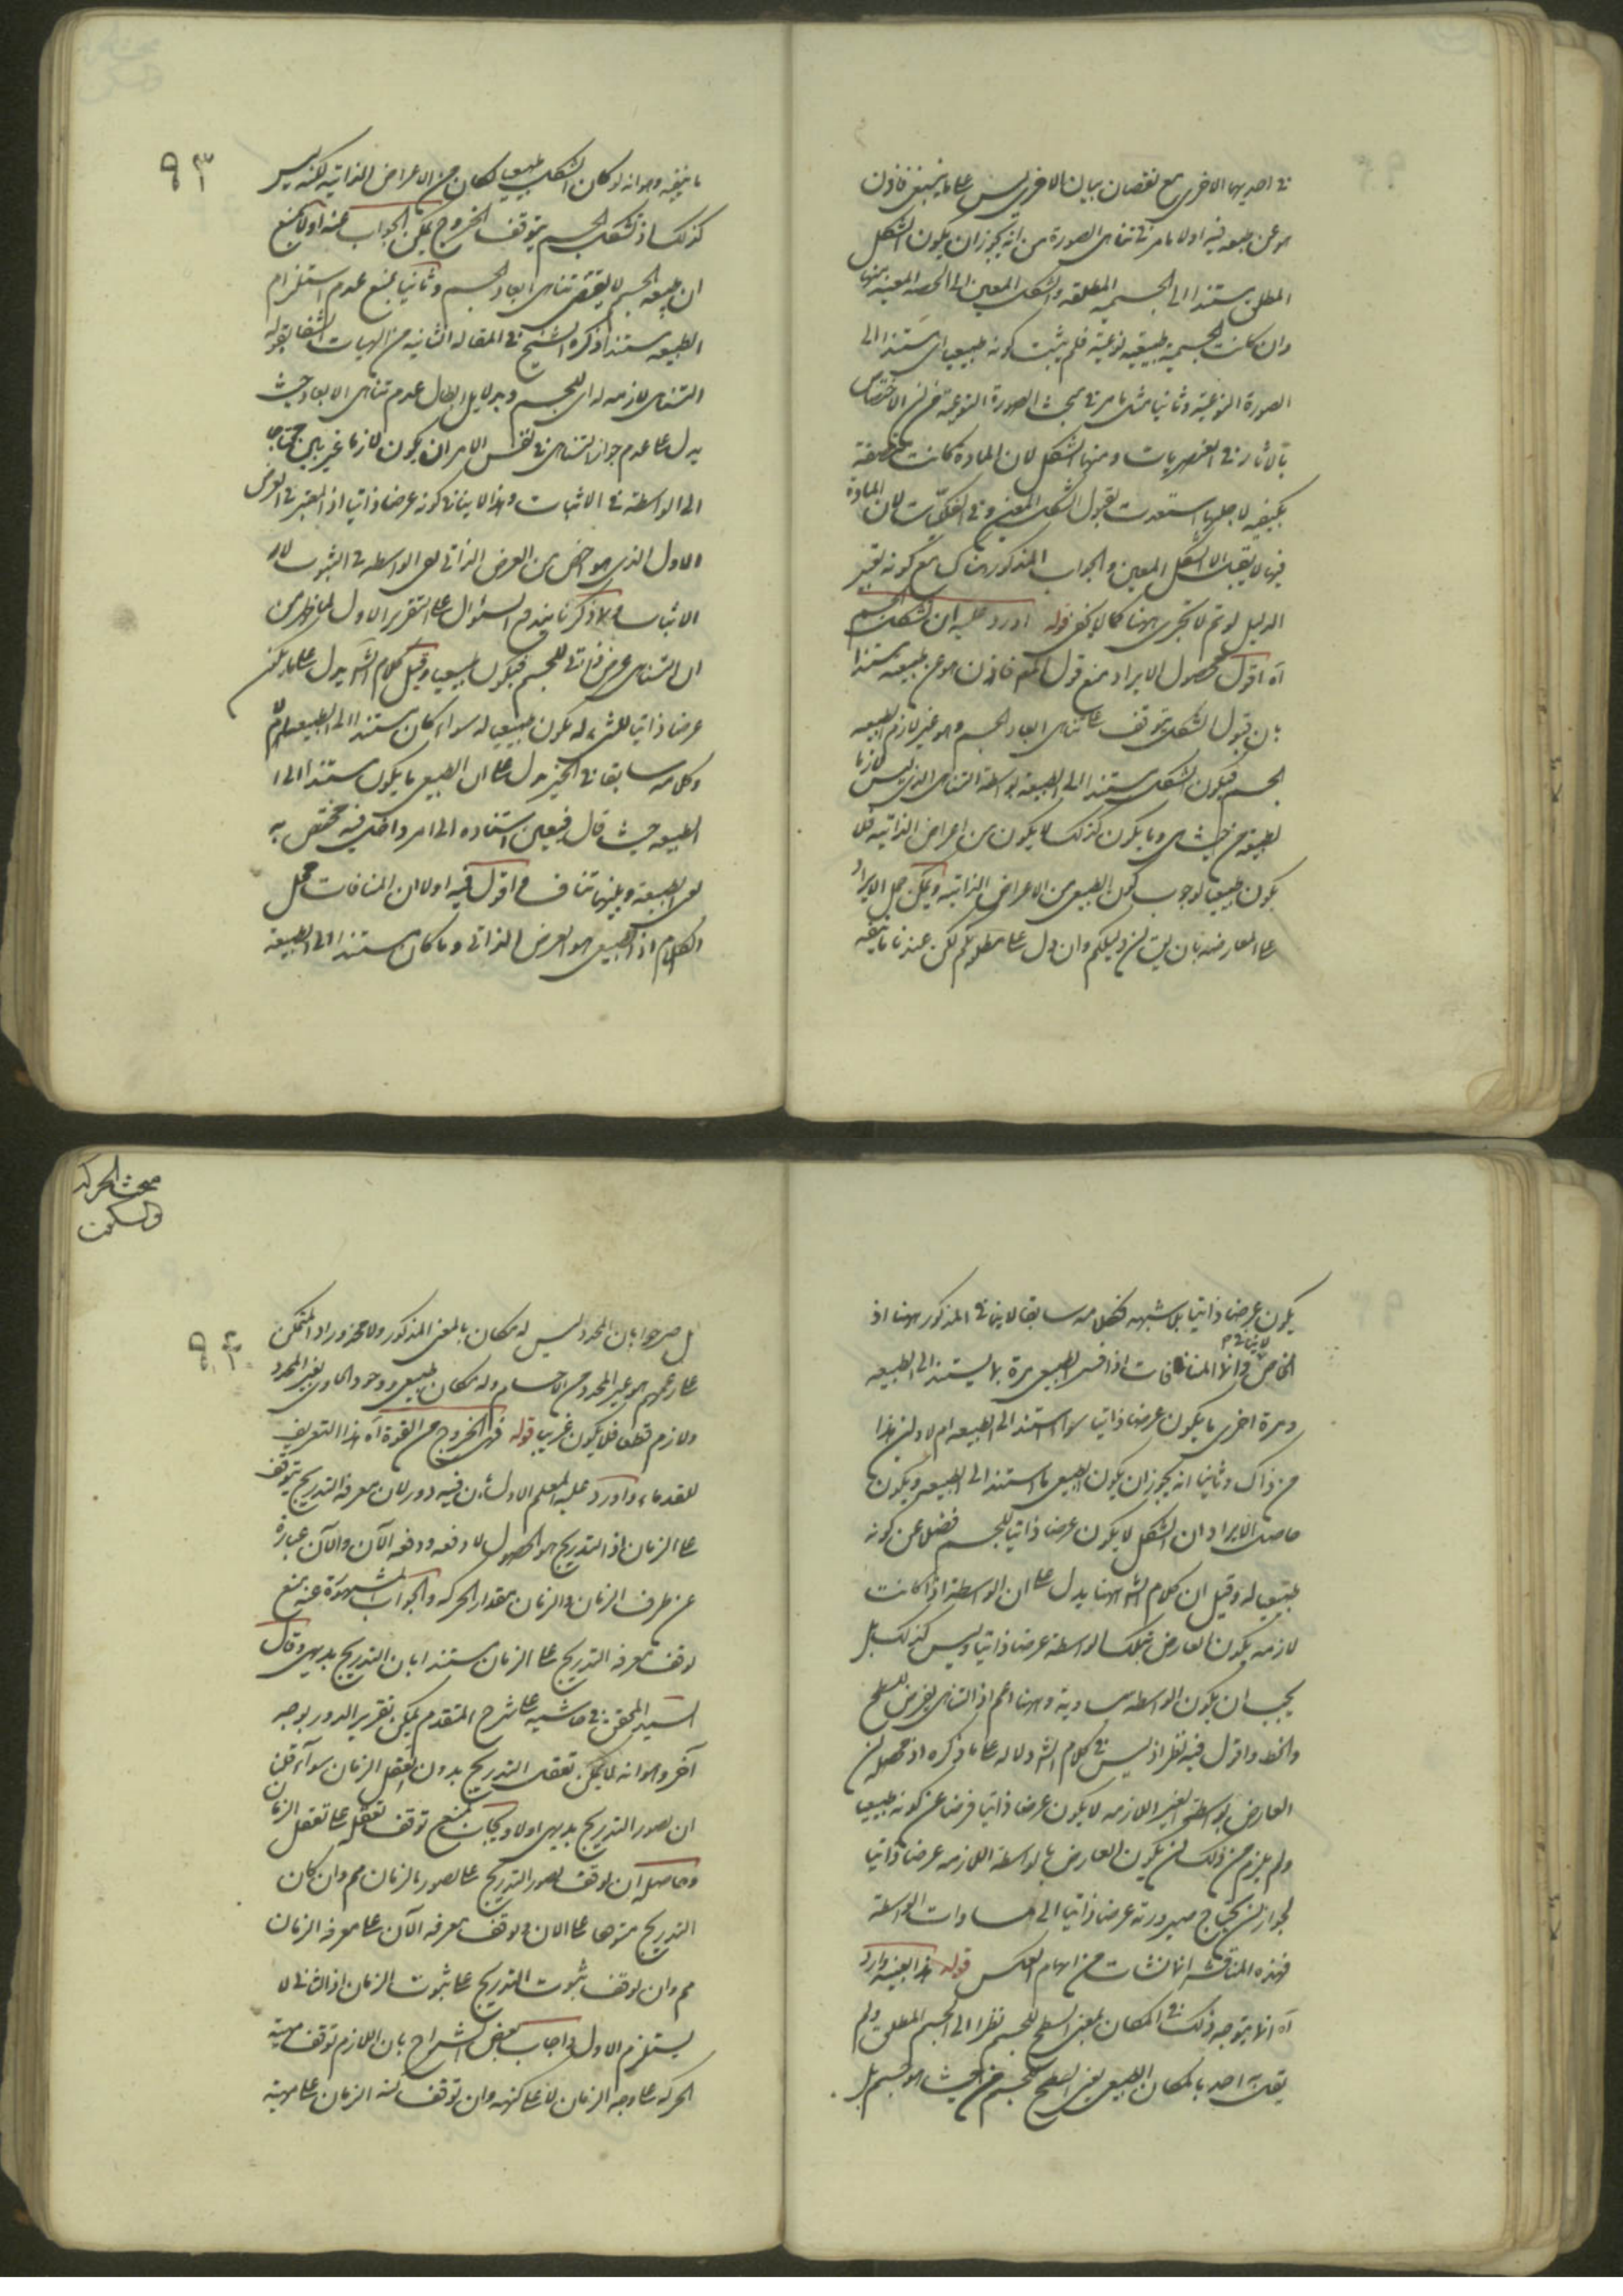 في احديهما الاخرى مع نقصان بيان الاخرى ليس على ما ينبغي فاذن
هو عن طبيعه فيه اولا ما مر في تناهى الصورة من انه يجوز ان يكون الشكل
المطلق مستندا الى الجسميه المطلقه والشكل المعين الى الحصه المعينه منها
وان كانت الجسمية طبيعيه نوعية فلم يثبت كونه طبيعيا اى مستندا الى
الصورة النوعية وثانيا مثل ما مر في مبحث الصورة النوعية من ان الاختصاص
بالآثار في العنصريات ومنها الشكل لان المادة كانت متصفة
بكيفيه لاجلها استعدت لقبول الشكل المعين وفي الفلكيات لان المادة
فيها لا يقبل الا الشكل المعين والجواب المذكور هناك مع كونه تغير
الدليل لو تم لا يجرى ههنا كما لا يخفى قوله اورد عليه ان تشكل الجسم
آه اقول محصول الايراد منع قول المص فاذن هو عن طبيعه مستندا
بان قبول الشكل يتوقف على تناهى ابعاد الجسم وهو غير لازم لطبيعه
الجسم فيكون الشكل مستندا الى الطبيعة بواسطة التناهى الذى ليس لازما
لطبيعة من حيث هى وما يكون كذلك لا يكون من اعراض الذاتيه فلا
يكون طبيعيا لوجوب كون الطبيعى من الاعراض الذاتيه ويمكن حمل الايراد
على المعارضه بان يق ان دليلكم وان دل على مطلوبكم لكن عندنا ما ينفيه
٩٣
ما ينفيه وهو انه لو كان الشكل طبيعيا لكان من الاعراض الذاتيه لكنه ليس
كذلك اذ تشكل الجسم يتوقف الخروج يمكن الجواب عنه اولا بمنع
ان طبيعه الجسم لا يقتضى تناهى ابعاد الجسم وثانيا بمنع عدم استلزام
الطبيعه مستندا ذكره الشيخ في المقاله الثانيه من الهيات الشفا بقوله
التناهى لازمه له اى للجسم وبدلايل ابطال عدم تناهى الابعاد حيث
يدل على عدم جواز لاتناهى في نفس الامر ان يكون لازما غير بين محتاجا
الى الواسطة في الاثبات وهذا لا ينافي كونه عرضا ذاتيا اذ المعتبر في العرض
الاول الذى هو اخص من العرض الذاتي نفى الواسطه في الثبوت لا
الاثبات وبما ذكرنا يندفع السئوال على التقرير الاول لما ظهر من
ان التناهى عرض ذاتى للجسم فيكون طبيعيا وقيل كلام الش يدل على ما يكون
عرضا ذاتيا للشىء له يكون طبيعيا له سواء كان مستندا الى الطبيعه ام لا
وكلامه سابقا في الحيز يدل على ان الطبيعى ما يكون مستندا الى
الطبيعه حيث قال فيعين استناده الى امر داخل فيه مختص به
هى الطبيعة وبينهما تناف اقول فيه اولا ان المنافات محل
الكلام اذ الطبيعى هو العرض الذاتى وما كان مستندا الى الطبيعة
يكون عرضا ذاتيا بلا شبهه فكلامه سابقا لا ينافي المذكور ههنا اذ
الخاص لا ينافي العام وانما المنافات اذا فسر الطبيعى مرة بما يستند الى الطبيعه
ومرة اخرى ما يكون عرضا ذاتيا سواء استند الى الطبيعه ام لا واين هذا
من ذاك وثانيا انه يجوز ان يكون الطبيعى ما استند الى الطبيعه ويكون
حاصل الايراد ان الشكل لا يكون عرضا ذاتيا للجسم فضلا عن كونه
طبيعيا له وقيل ان كلام الش ههنا يدل على ان الواسطة اذا كانت
لازمه يكون العارض بتلك الواسطه عرضا ذاتيا وليس كذلك بل
يجب ان يكون الواسطه مساوية وههنا اعم اذ التناهى يعرض للسطح
والخط واقول فيه نظر اذ ليس في كلام الش دلاله على ما ذكره اذ محصله ان
العارض بواسطة الغير اللازمه لا يكون عرضا ذاتيا فرضا عن كونه طبيعيا
ولم يلزم من ذلك ان يكون العارض بالواسطه اللازمه عرضا ذاتيا
لجواز ان يحتاج صيرورته عرضا ذاتيا الى مساوات الواسطة
فهذه المناقشه انما نشات من ايهام العكس قوله هذا بعينه وارد
آه انما يتوجه ذلك في المكان بمعنى السطح للجسم نظرا الى الجسم المطلق ولم
يقل به احد بالمكان الطبيعى بمعنى السطح للجسم من حيث هو جسم بل
مبحث الحركة
والسكون
٩٤
بل صرحوا بان المحدد ليس له مكان بالمعنى المذكور ولا محذور اذ المتمكن
على زعمهم هو غير المحدد من الاجسام وله مكان طبيعى ووجود الحاوى لغير المحدد
ولازم قطعا فلا يكون غريبا قوله فهى الخروج من القوة آه هذا التعريف
للقدماء واورد عليه المعلم الاول بان فيه دور لان معرفة التدريج يتوقف
على الزمان اذ التدريج هو الحصول لا دفعه ودفعه الآن والآن عبارة
عن طرف الزمان والزمان مقدار الحركه والجواب المشهور عنه بمنع
توقف معرفه التدريج على الزمان مستندا بان التدريج بديهى وقال
السيد المحقق في حاشيه على شرح المتقدم يمكن تقرير الدور بوجه
آخر وهو انه لا يمكن تعقل التدريج بدون تعقل الزمان سواء قلنا
ان تصور التدريج بديهى اولا ويجاب بمنع توقف تعقله على تعقل الزمان
وحاصله ان توقف تصور التدريج على تصور الزمان مم وان كان
التدريج متوقفا على الان وتوقف معرفه الآن على معرفه الزمان
مم وان توقف ثبوت التدريج على ثبوت الزمان اذ الثانى لا
يستلزم الاول واجاب بعض الشراح بان اللازم توقف مهية
الحركه على وجه الزمان لا على كنهه وان توقف كنه الزمان على مهية